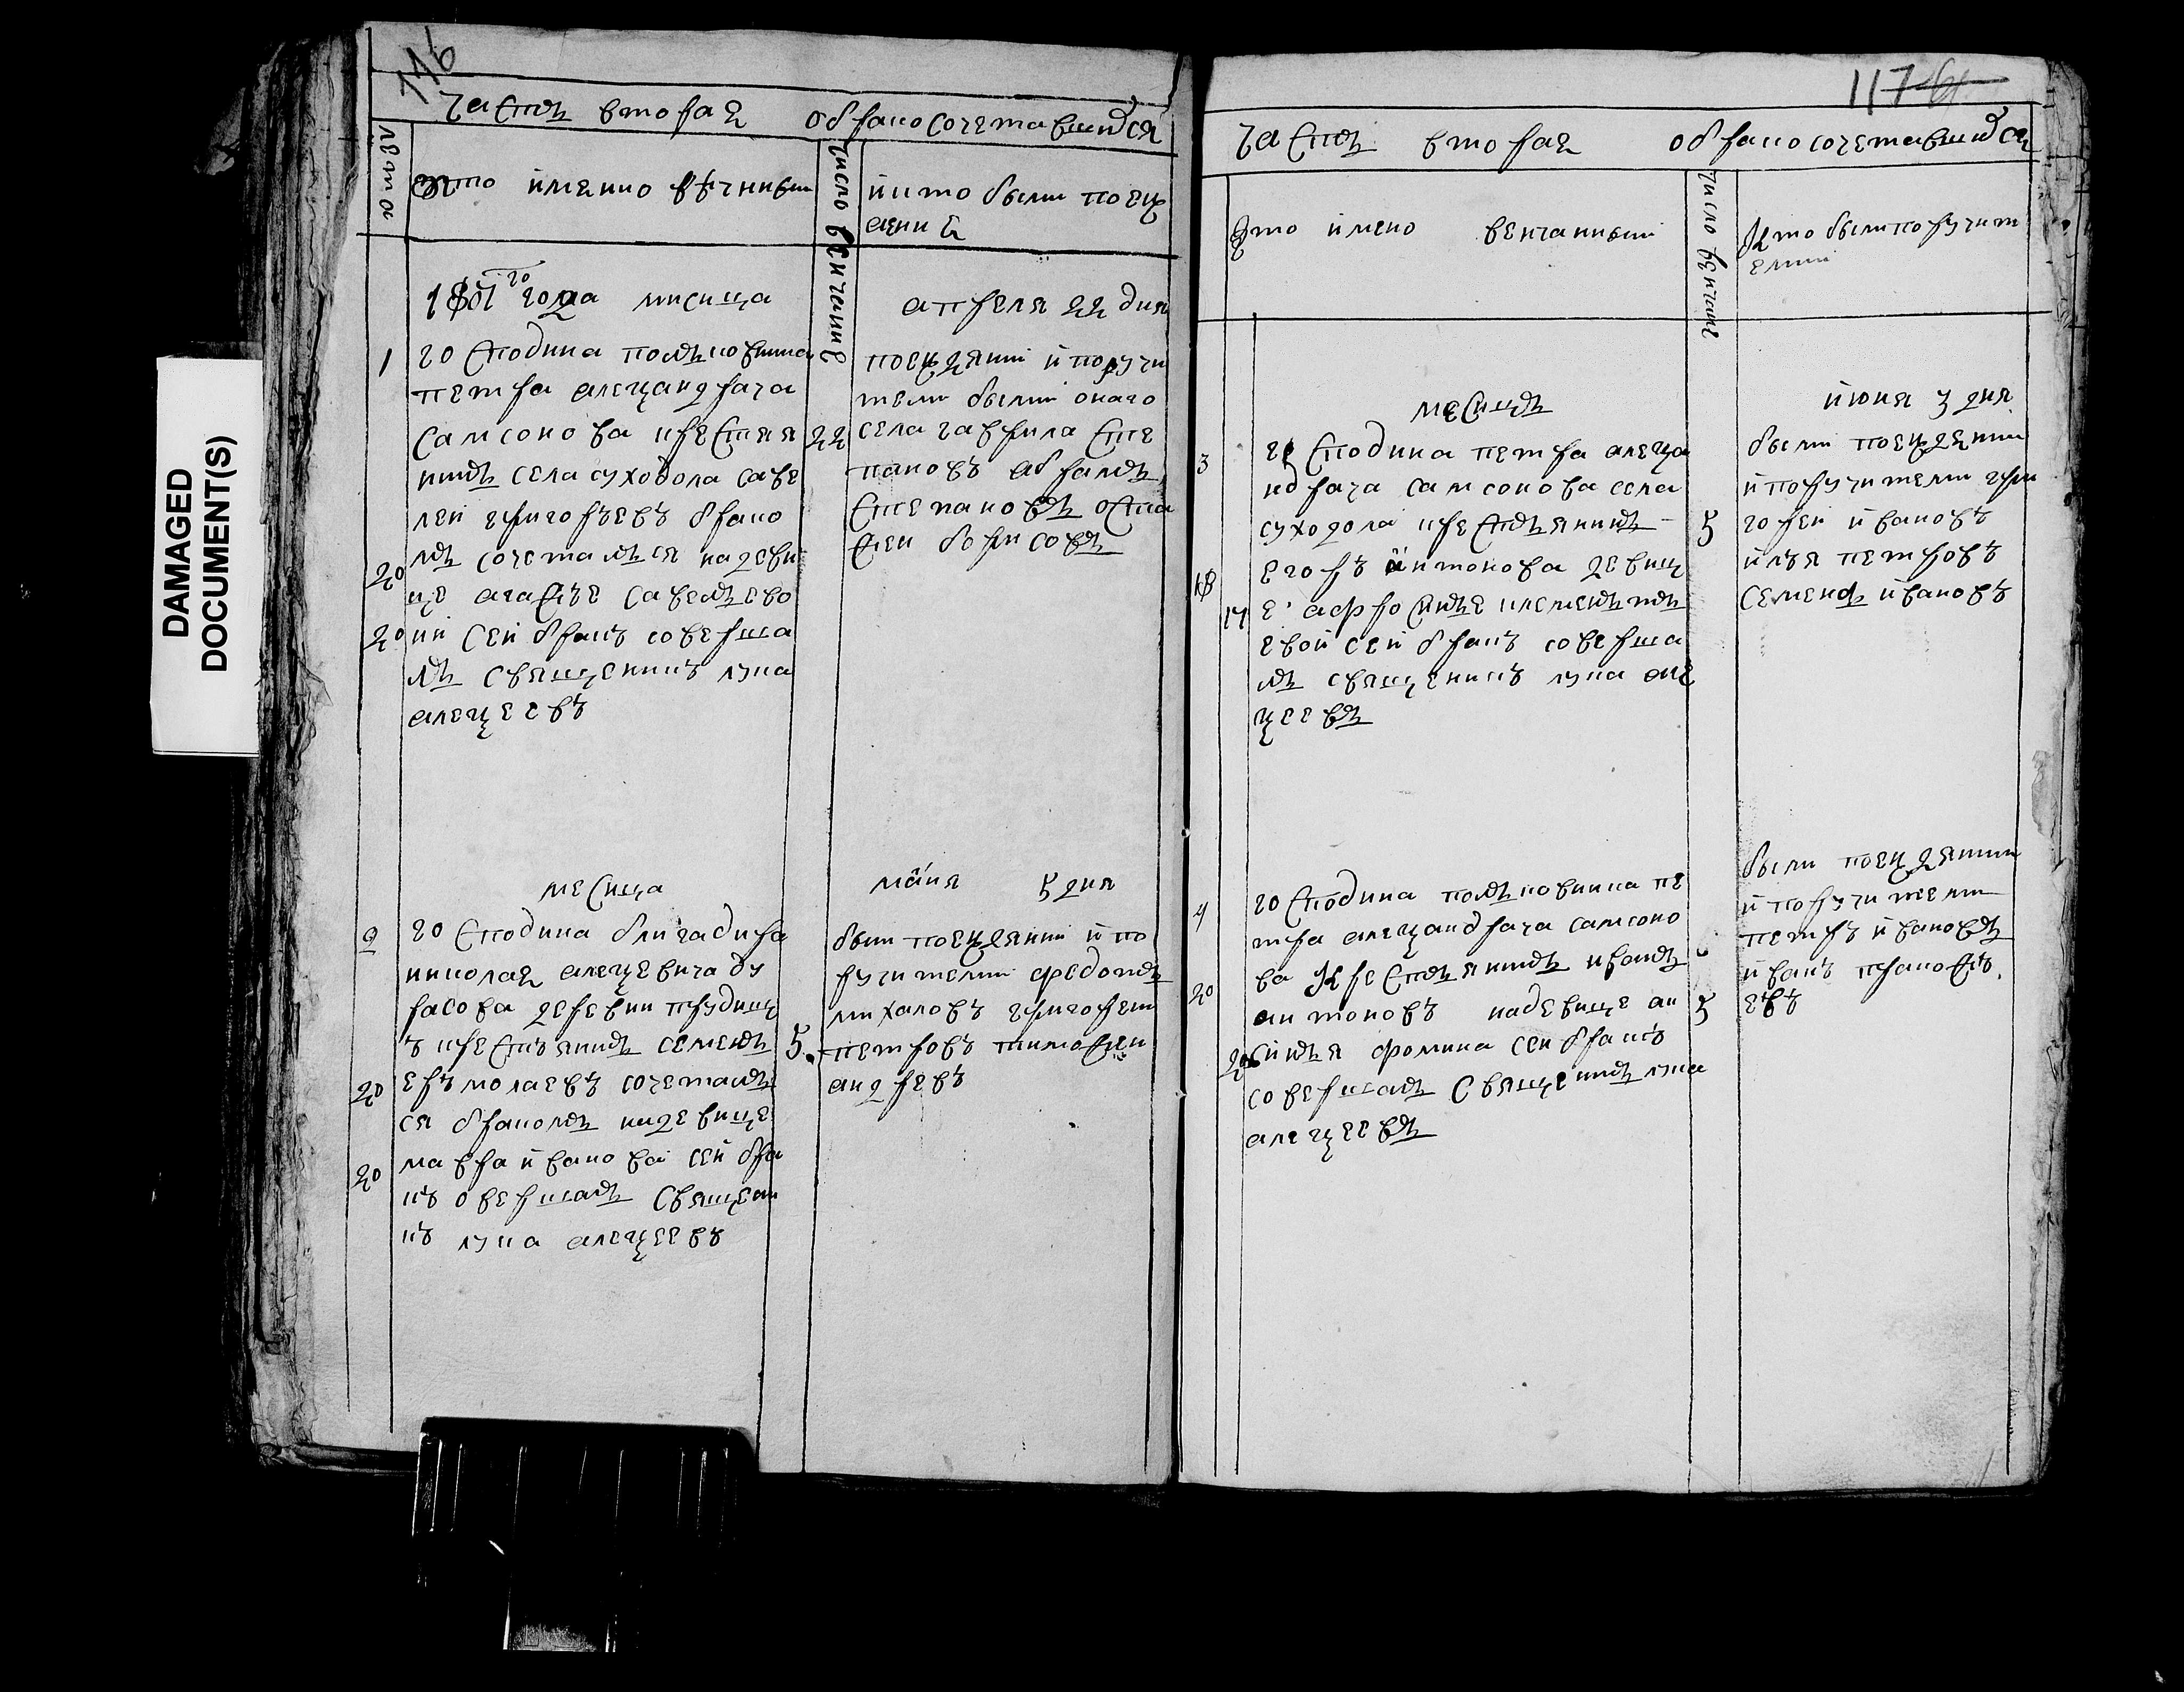 DAMAGED
DOCUMENT(S)
116
часть вторая о бракосочетавшихся
лета
кто имянно венчаныи
число венчание
и кто были поезж
аени я
1801 го года мисица апреля 22 дня
1
го сподина полковника
петра александрача
самсонова крестьяя
нинъ села суходола саве
леи григорьевъ брако
мъ сочетался на деви
це агафье савельево
ии сеи бракъ соверша
лъ священникъ лука
алексеевъ
20
20
22
поезжянии и поручи
тели были онаго
села гаврила сте
пановъ абрамъ
степановъ оста
феи борисовъ
месица маия 5 дня
2
го сподина бригадира
николая алексевича ду
расова деревни прудищ
ъ крестьянинъ семенъ
ермолаевъ сочеталъ
ся бракомъ на девице
мавра иванова сеи бра
къ овершалъ священи
къ лука алексеевъ
20
20
5
были поезжянии и по
ручители федотъ
михаловъ григореи
петровъ тимофеи
андревъ
117
часть вторая о бракосочетавшихся
кто имено венчанныи
число венчание
кто были поручит
елии
месицъ июня 3 дня
3
го сподина петра алекса
ндрача самсонова села
суходола крестьянинъ
егоръ антонова девиц
е афросинье клементь
евои сеи бракъ соверша
лъ священикъ лука але
ксеевъ
18
17
5
были поезжении
и поручители гри
гореи ивановъ
илья петровъ
семенъ ивановъ
4
го сподина полковника пе
тра александрача самсоно
ва крестьянинъ иванъ
антоновъ на девице ан
синья фомина сеи бракъ
совершалъ священикъ лука
алексеевъ
20
20
5
были поезжянии
и поручители
петръ ивановъ
иванъ пракофь
евъ